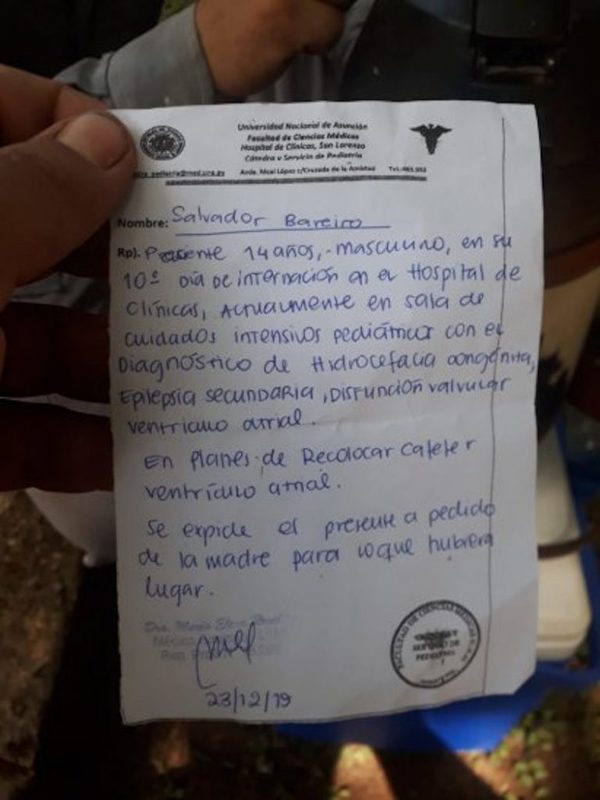 Universidad Nacional de Asunción
Facultad de Ciencias Médicas
Hospital de Clínicas, San Lorenzo
Cátedra y Servicio de Pediatría
Avda. Mcal López c/Cruzada de la Amistad
Nombre: Salvador Bareiro
Rp). Paciente 14 años, masculino, en su
10º Día de internación en el Hospital de
Clínicas, Actualmente en sala de
cuidados intensivos pediátricos con el
Diagnóstico de Hidrocefalia congénita,
Epilepsia secundaria, Disfunción valvular
ventrículo atrial.
En planes de Recolocar Cateter
ventrículo atrial.
Se expide el presente a pedido
de la madre para lo que hubiera
lugar.
23/12/19
FACULTAD DE CIENCIAS MÉDICAS